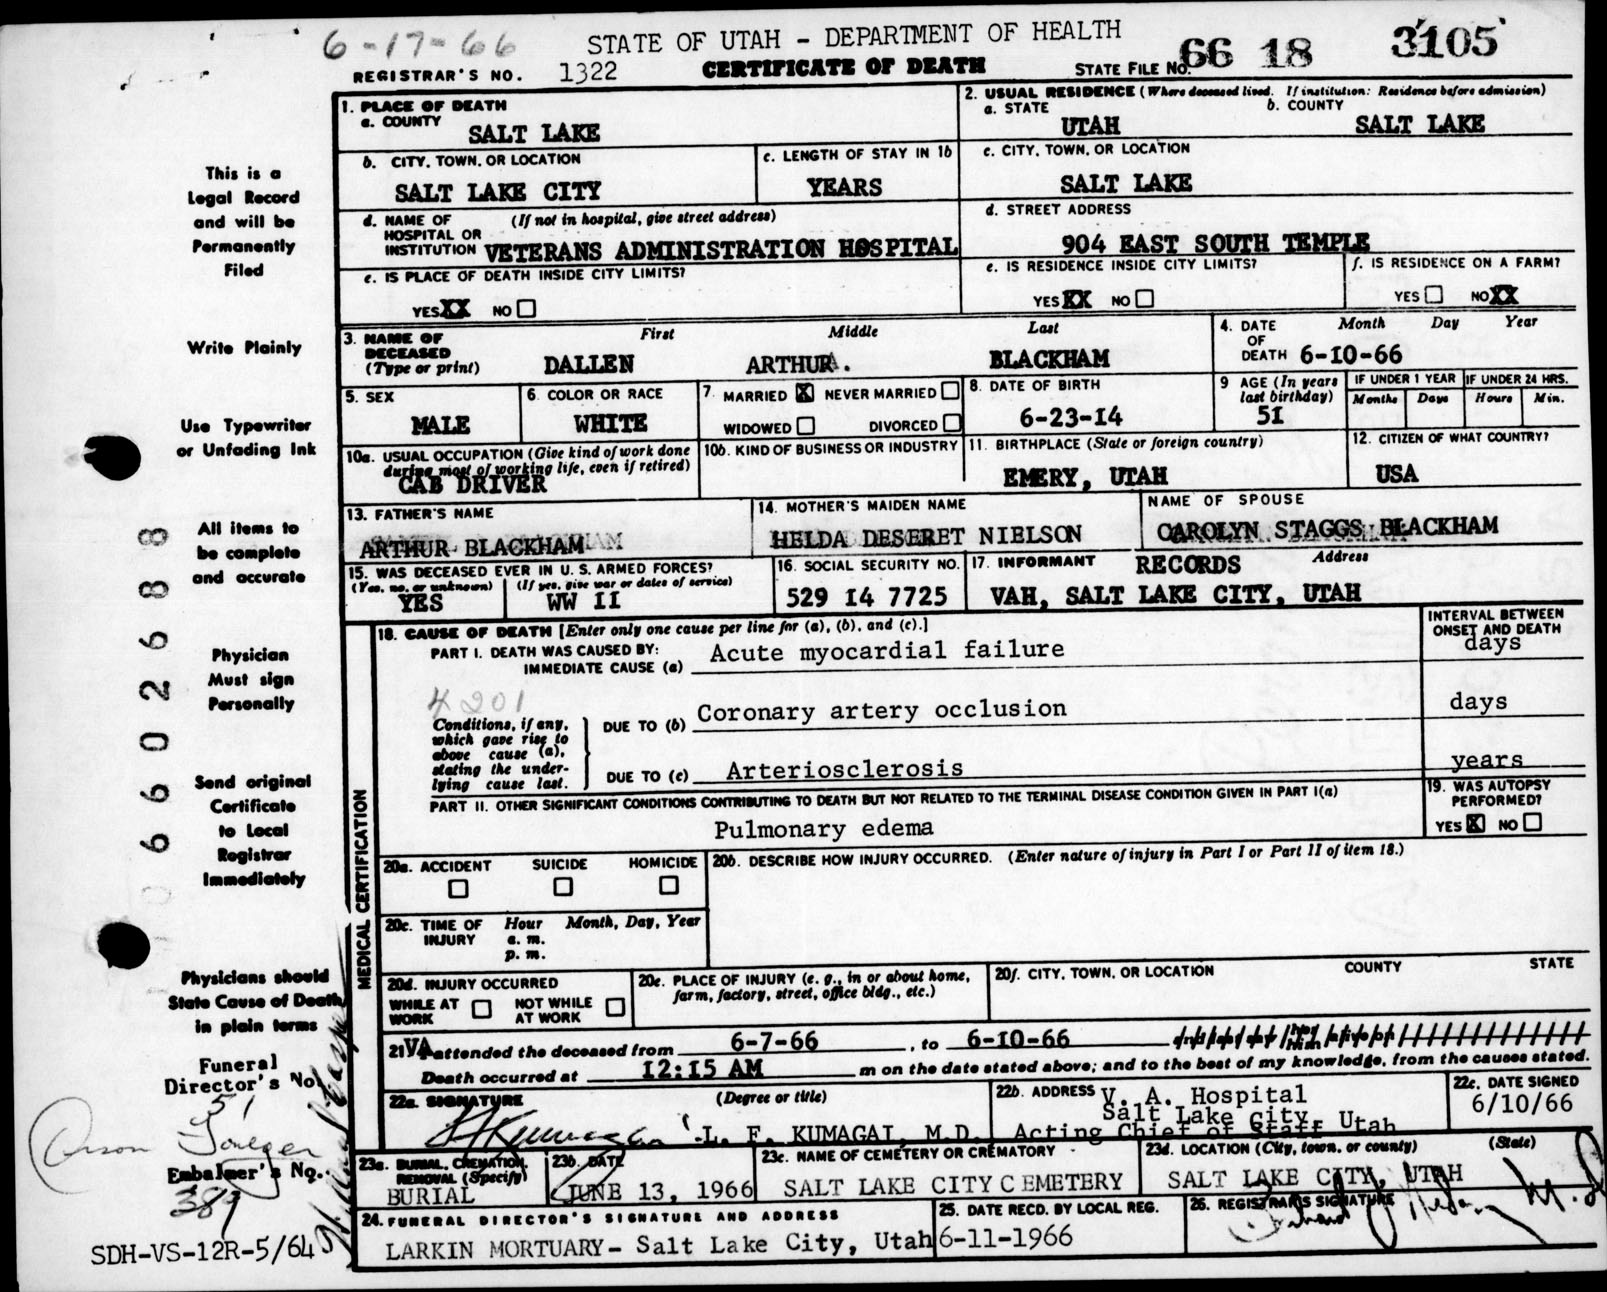 6-17-66
STATE OF UTAH - DEPARTMENT OF HEALTH
REGISTRAR'S NO. 1322 CERTIFICATE OF DEATH STATE FILE NO. 66 18 3105
This is a
Legal Record
and will be
Permanently
Filed
Write Plainly
Use Typewriter
or Unfading Ink
All items to
be complete
and accurate
Physician
Must sign
Personally
Send original
Certificate
to Local
Registrar
Immediately
Physicians should
State Cause of Death
in plain terms
Funeral
Director's No.
51
Orson
Embalmer's No.
389
SDH-VS-12R-5/64
6602688
1. PLACE OF DEATH
a. COUNTY SALT LAKE
2. USUAL RESIDENCE (Where deceased lived. If institution: Residence before admission)
a. STATE UTAH b. COUNTY SALT LAKE
b. CITY, TOWN, OR LOCATION SALT LAKE CITY
c. LENGTH OF STAY IN 1b YEARS
c. CITY, TOWN, OR LOCATION SALT LAKE
d. NAME OF HOSPITAL OR INSTITUTION (If not in hospital, give street address) VETERANS ADMINISTRATION HOSPITAL
d. STREET ADDRESS 904 EAST SOUTH TEMPLE
e. IS PLACE OF DEATH INSIDE CITY LIMITS?
YES XX NO
e. IS RESIDENCE INSIDE CITY LIMITS?
YES XX NO
f. IS RESIDENCE ON A FARM?
YES NO XX
3. NAME OF DECEASED (Type or print) First Middle Last
DALLEN ARTHUR. BLACKHAM
4. DATE OF DEATH Month Day Year
6-10-66
5. SEX MALE
6. COLOR OR RACE WHITE
7. MARRIED X NEVER MARRIED
WIDOWED DIVORCED
8. DATE OF BIRTH 6-23-14
9 AGE (In years last birthday) 51
IF UNDER 1 YEAR Months Days
IF UNDER 24 HRS. Hours Min.
10a. USUAL OCCUPATION (Give kind of work done during most of working life, even if retired)
CAB DRIVER
10b. KIND OF BUSINESS OR INDUSTRY
11. BIRTHPLACE (State or foreign country)
EMERY, UTAH
12. CITIZEN OF WHAT COUNTRY?
USA
13. FATHER'S NAME
ARTHUR BLACKHAM
14. MOTHER'S MAIDEN NAME
HELDA DESERET NIELSON
NAME OF SPOUSE
CAROLYN STAGGS BLACKHAM
15. WAS DECEASED EVER IN U.S. ARMED FORCES?
(Yes, no, or unknown) (If yes, give war or dates of service)
YES WW II
16. SOCIAL SECURITY NO.
529 14 7725
17. INFORMANT RECORDS Address
VAH, SALT LAKE CITY, UTAH
18. CAUSE OF DEATH [Enter only one cause per line for (a), (b), and (c).]
INTERVAL BETWEEN ONSET AND DEATH
PART I. DEATH WAS CAUSED BY:
IMMEDIATE CAUSE (a) Acute myocardial failure days
4201
Conditions, if any, which gave rise to above cause (a), stating the underlying cause last.
DUE TO (b) Coronary artery occlusion days
DUE TO (c) Arteriosclerosis years
PART II. OTHER SIGNIFICANT CONDITIONS CONTRIBUTING TO DEATH BUT NOT RELATED TO THE TERMINAL DISEASE CONDITION GIVEN IN PART I(a)
Pulmonary edema
19. WAS AUTOPSY PERFORMED?
YES X NO
MEDICAL CERTIFICATION
20a. ACCIDENT SUICIDE HOMICIDE
20b. DESCRIBE HOW INJURY OCCURRED. (Enter nature of injury in Part I or Part II of item 18.)
20c. TIME OF INJURY Hour Month, Day, Year
a. m.
p. m.
20d. INJURY OCCURRED
WHILE AT WORK NOT WHILE AT WORK
20e. PLACE OF INJURY (e. g., in or about home, farm, factory, street, office bldg., etc.)
20f. CITY, TOWN, OR LOCATION COUNTY STATE
21 VA attended the deceased from 6-7-66, to 6-10-66
Death occurred at 12:15 AM m on the date stated above; and to the best of my knowledge, from the causes stated.
22a. SIGNATURE (Degree or title)
L. F. KUMAGAI, M.D.
22b. ADDRESS V. A. Hospital
Salt Lake City, Utah
Acting Chief of Staff
22c. DATE SIGNED
6/10/66
23a. BURIAL, CREMATION, REMOVAL (Specify)
BURIAL
23b. DATE
JUNE 13, 1966
23c. NAME OF CEMETERY OR CREMATORY
SALT LAKE CITY CEMETERY
23d. LOCATION (City, town, or county) (State)
SALT LAKE CITY, UTAH
24. FUNERAL DIRECTOR'S SIGNATURE AND ADDRESS
LARKIN MORTUARY- Salt Lake City, Utah
25. DATE RECD. BY LOCAL REG.
6-11-1966
26. REGISTRAR'S SIGNATURE